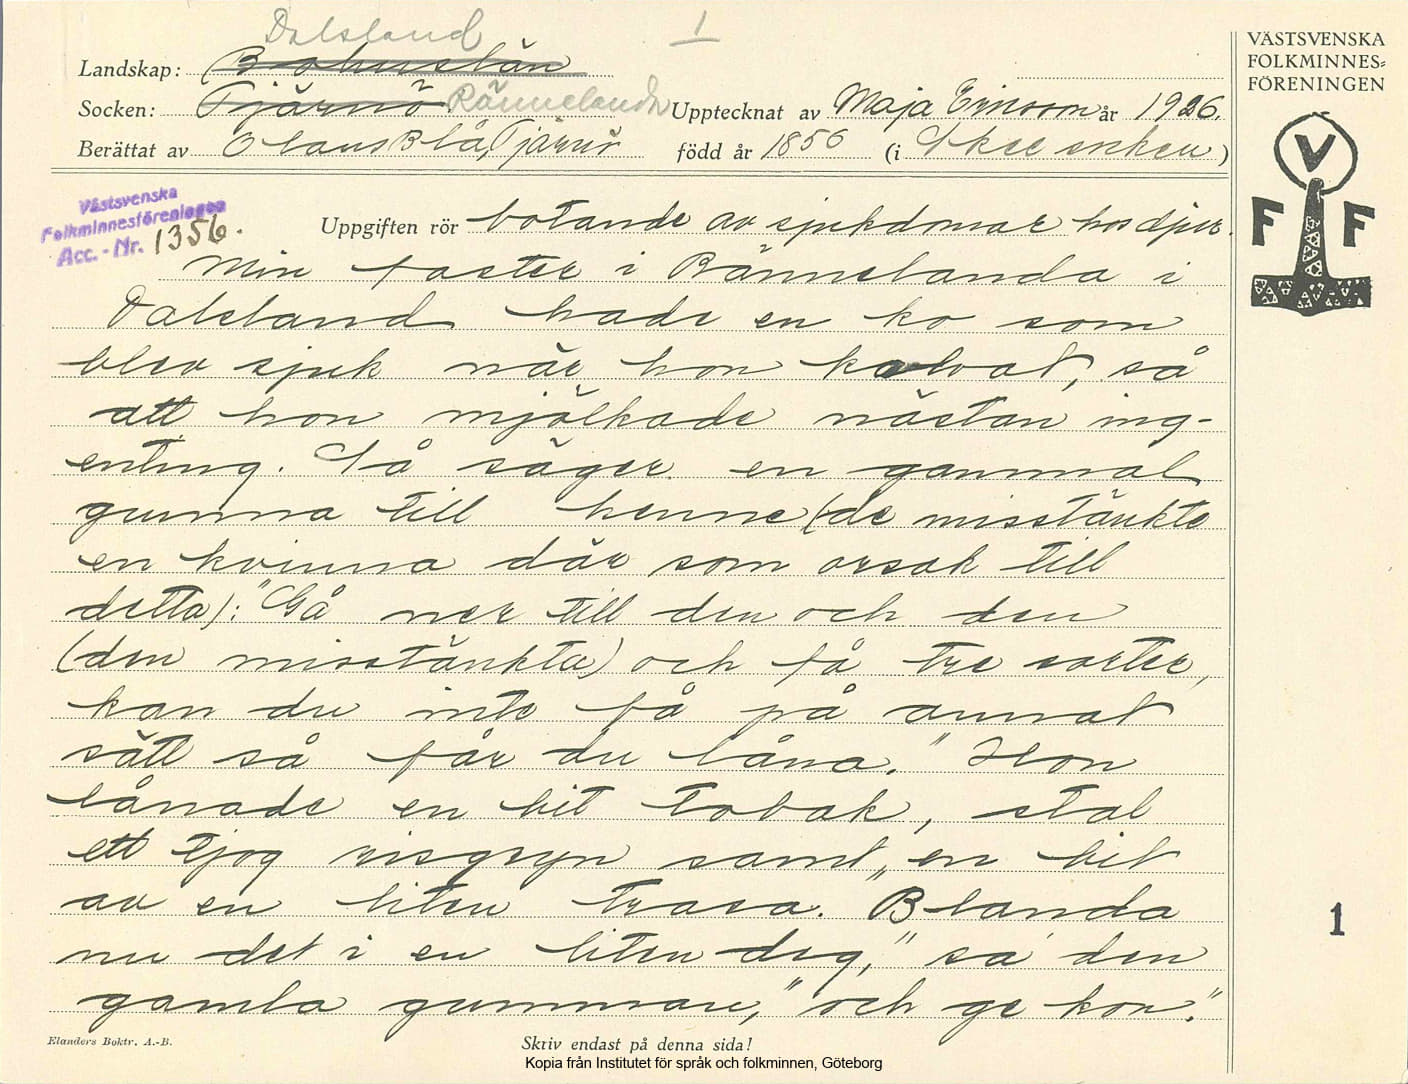 Dalsland
1
Landskap: Bohuslän
Socken: Tjärnö Rännelanda Upptecknat av Maja Ericson år 1926.
Berättat av Olaus Blå, Tjärnö född år 1850 (i Skee socken)
Västsvenska
Folkminnesföreningen
Acc.-Nr. 1356.
Uppgiften rör botande av sjukdomar hos djur.
Min faster i Rännelanda i
Dalsland hade en ko som
blev sjuk när hon kalvat, så
att hon mjölkade nästan ing-
enting. Så säger en gammal
gumma till henne (de misstänkte
en kvinna där som orsak till
detta): "Gå ner till den och den
(den misstänkta) och få tre sorter,
kan du inte få på annat
sätt så får du låna." Hon
lånade en bit tobak, stal
ett tjog risgryn samt „en bit
av en liten trasa. "Blanda
nu det i en liten deg," sa den
gamla gumman, "och ge kon."
Elanders Boktr. A.-B.
Skriv endast på denna sida!
Kopia från Institutet för språk och folkminnen, Göteborg
VÄSTSVENSKA
FOLKMINNES=
FÖRENINGEN
V
F F
1